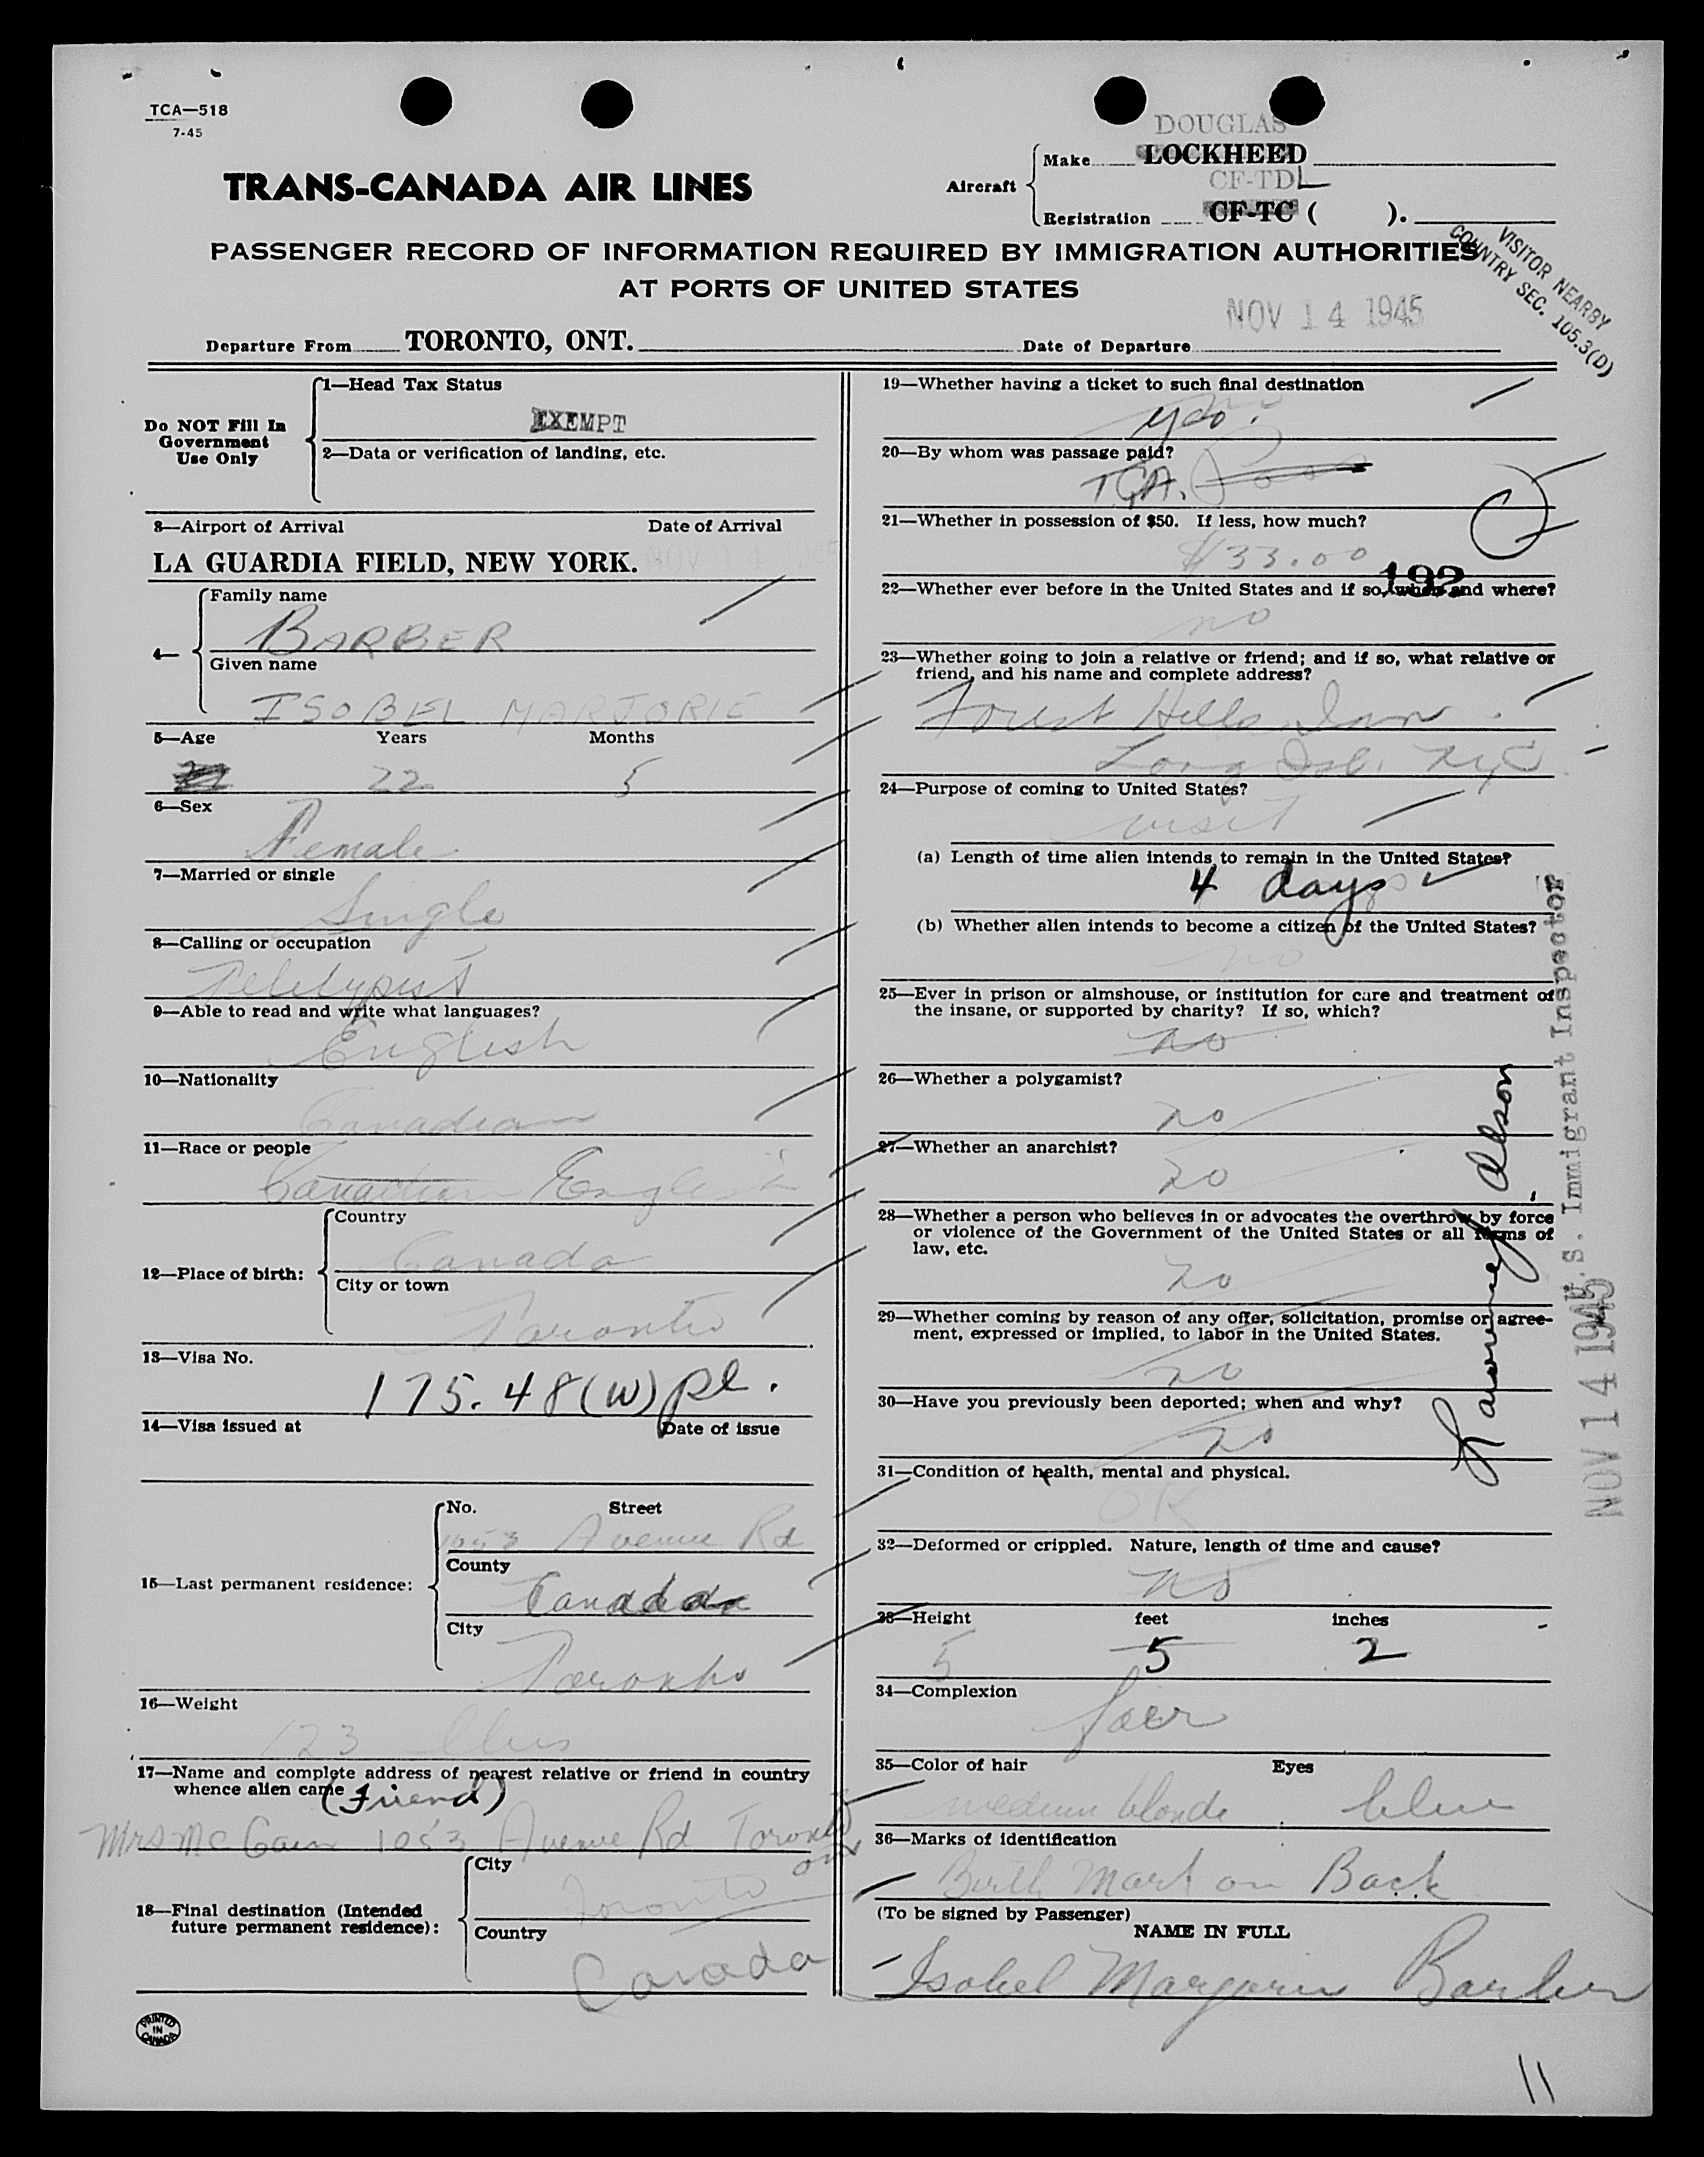 TCA—518
7-45
DOUGLAS
Aircraft
Make LOCKHEED
CF-TDL
Registration CF-TC ( ).
TRANS-CANADA AIR LINES
PASSENGER RECORD OF INFORMATION REQUIRED BY IMMIGRATION AUTHORITIES
AT PORTS OF UNITED STATES
VISITOR NEARBY
COUNTRY SEC. 105.3(D)
NOV 14 1945
Departure From TORONTO, ONT. Date of Departure
Do NOT Fill In
Government
Use Only
1—Head Tax Status
EXEMPT
2—Data or verification of landing, etc.
3—Airport of Arrival Date of Arrival
LA GUARDIA FIELD, NEW YORK.
4—
Family name
BARBER
Given name
ISOBEL MARJORIE
5—Age Years Months
22 5
6—Sex
Female
7—Married or single
Single
8—Calling or occupation
Teletypist
9—Able to read and write what languages?
English
10—Nationality
Canadian
11—Race or people
Canadian English
12—Place of birth:
Country
Canada
City or town
Toronto
13—Visa No.
175.48(W) pl.
14—Visa issued at Date of issue
15—Last permanent residence:
No. Street
1053 Avenue Rd
County
Canada
City
Toronto
16—Weight
123 lbs
17—Name and complete address of nearest relative or friend in country
whence alien came (Friend)
Mrs 1053 Avenue Rd Toronto
Ont
18—Final destination (Intended
future permanent residence):
City
Toronto
Country
Canada
PRINTED
IN
CANADA
19—Whether having a ticket to such final destination
yes.
20—By whom was passage paid?
TCA.
21—Whether in possession of $50. If less, how much?
$33.00
192
22—Whether ever before in the United States and if so, when and where?
no
23—Whether going to join a relative or friend; and if so, what relative or
friend, and his name and complete address?
Forest Hills Inn.
Long Isl. NYC
24—Purpose of coming to United States?
visit
(a) Length of time alien intends to remain in the United States?
4 days
(b) Whether alien intends to become a citizen of the United States?
no
25—Ever in prison or almshouse, or institution for care and treatment of
the insane, or supported by charity? If so, which?
no
26—Whether a polygamist?
no
27—Whether an anarchist?
no
28—Whether a person who believes in or advocates the overthrow by force
or violence of the Government of the United States or all forms of
law, etc.
no
29—Whether coming by reason of any offer, solicitation, promise or agree-
ment, expressed or implied, to labor in the United States.
no
30—Have you previously been deported; when and why?
no
31—Condition of health, mental and physical.
OK
32—Deformed or crippled. Nature, length of time and cause?
no
33—Height feet inches
5 5 2
34—Complexion
fair
35—Color of hair Eyes
medium blonde blue
36—Marks of identification
Birth Mark on Back
(To be signed by Passenger)
NAME IN FULL
Isobel Marjorie Barber
U.S. Immigrant Inspector
NOV 14 1945
11